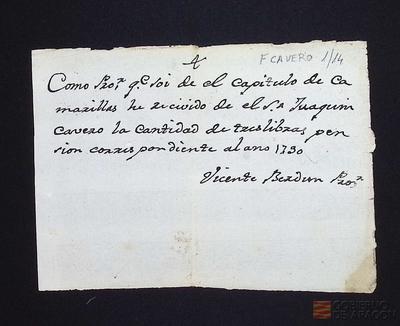 F CAVERO 1/14
Como Pror. qe. soi de el capitulo de Ca
marillas he recivido de el Sr. Juaquin
cavero la cantidad de tres libras pen
sion corres pondiente al ano 1790
Vicente Berdun Pror.
GOBIERNO
DE ARAGON